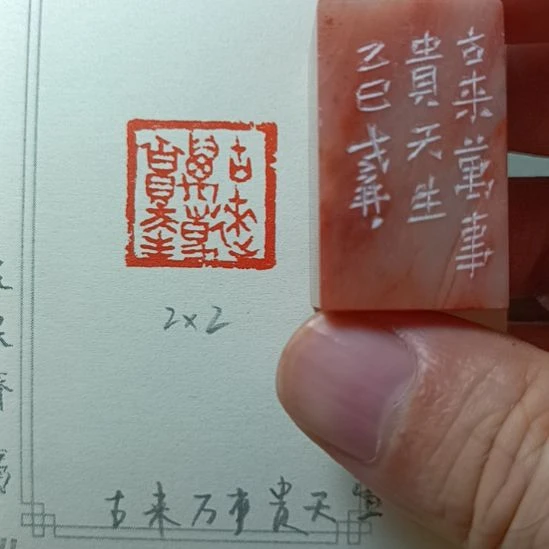 古来萬事
貴天生
乙巳弋彛
古来
萬事
貴天生
2×2
古来万事贵天生